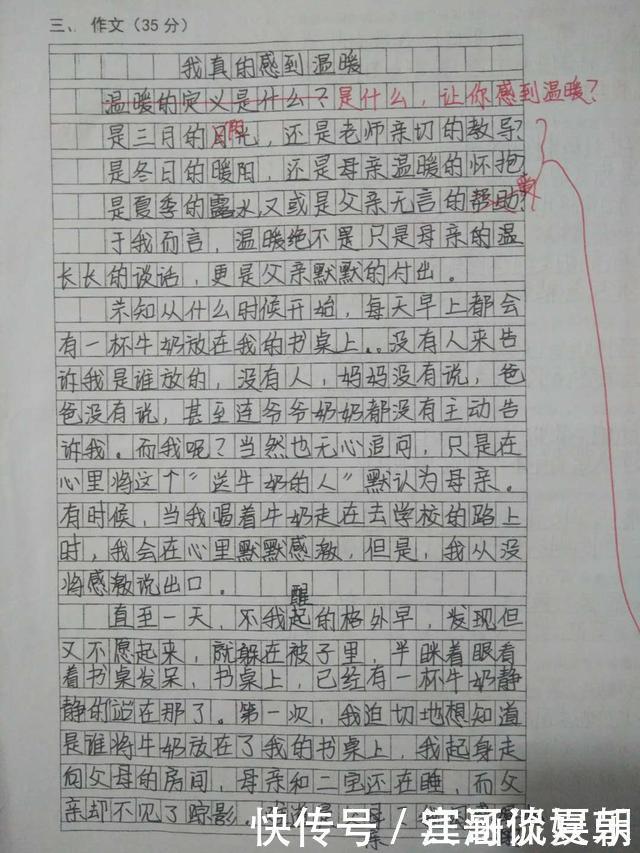 三、作文(35分)
我真的感到温暖
温暖的定义是什么?是什么,让你感到温暖?
是三月的阳光,还是老师亲切的教导?
是冬日的暖阳,还是母亲温暖的怀抱?
是夏季的露水,又或是父亲无言的帮助?
于我而言,温暖绝不是只是母亲的温
长长的谈话,更是父亲默默的付出。
未知从什么时候开始,每天早上都会
有一杯牛奶放在我的书桌上..没有人来告
诉我是谁放的,没有人,妈妈没有说,爸
爸没有说,甚至连爷爷奶奶都没有主动告
诉我。而我呢?当然也无心追问,只是在
心里将这个"送牛奶的人"默认为母亲。
有时候,当我喝着牛奶走在去学校的路上
时,我会在心里默默感激,但是,我从没
将感激说出口。
醒
直至一天,不我起的格外早,发现但
又不愿起来,就躲在被子里,半眯着眼看
着书桌发呆,书桌上,已经有一杯牛奶静
静的站在那了。第一次,我迫切地想知道
是谁将牛奶放在了我的书桌上,我起身走
向父母的房间,母亲和二宝还在睡,而父
亲却不见了踪影。
快传号/